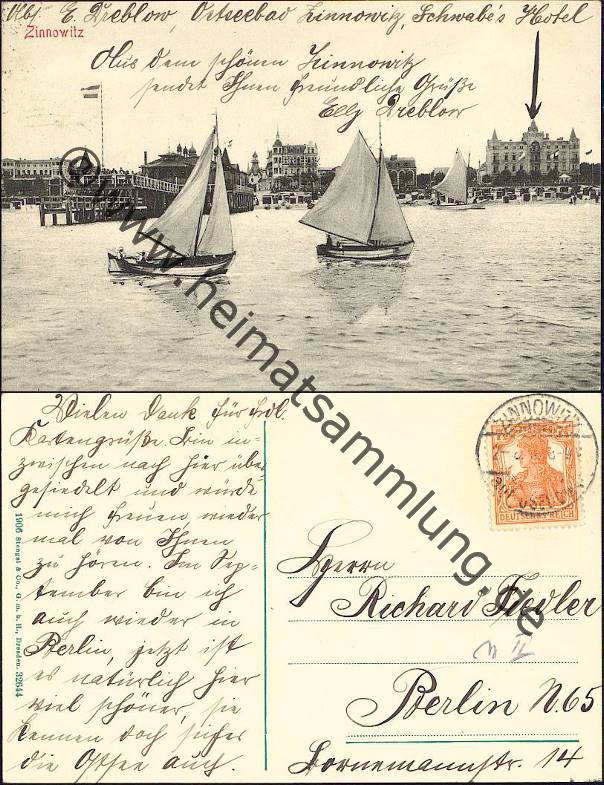 Abs. E. Dreblow, Ostseebad Zinnowitz, Schwabe's Hotel
Zinnowitz
Aus dem schönen Zinnowitz
sendet Ihnen freundliche Grüße
Elly Dreblow
@www.heimatsammlung.de
Vielen Dank für frdl.
Kartengrüße. Bin in-
zwischen nach hier über
gesiedelt und würde
mich freuen, wieder
mal von Ihnen
zu hören. Im Sep-
tember bin ich
auch wieder in
Berlin, jetzt ist
es natürlich hier
viel schöner, sie
kennen doch sicher
die Ostsee auch.
1906 Stengel & Co., G. m. b. H., Dresden. 32644
ZINNOWITZ
USEDOM
DEUTSCHES REICH
Herrn
Richard Fiedler
Berlin N. 65
Bornemannstr. 14